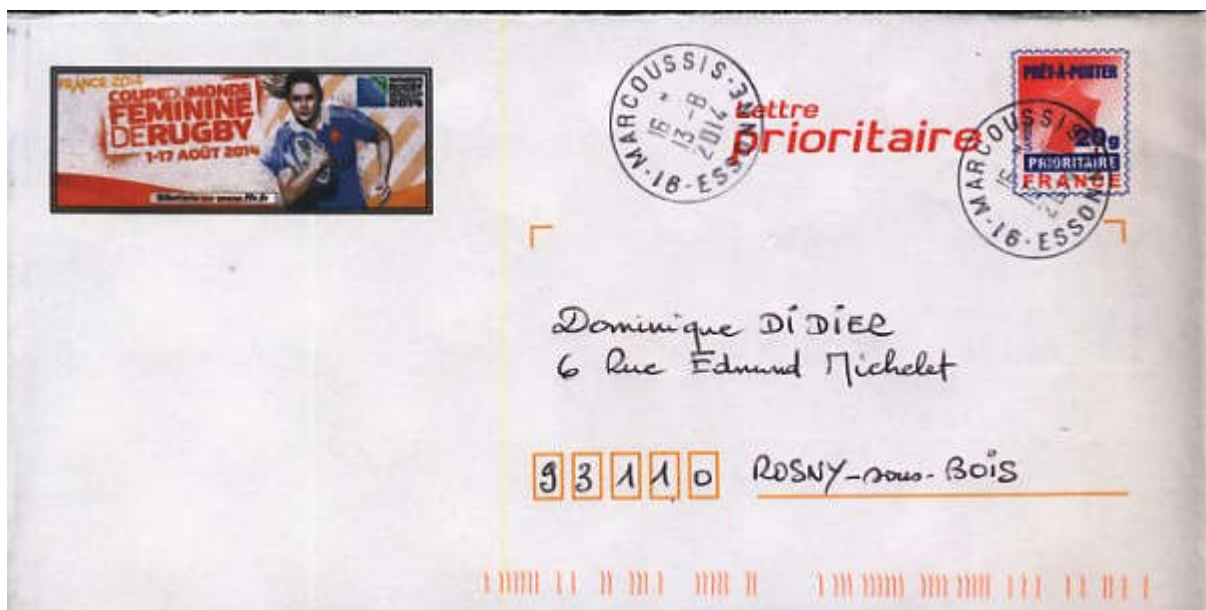 FRANCE 2014
COUPE DU MONDE
FÉMININE
DE RUGBY
1-17 AOÛT 2014
MARCOUSSIS
16 *
13 - 8
2014
91 - ESSONNE
Lettre
prioritaire
PRÊT-À-POSTER
20g
PRIORITAIRE
FRANCE
MARCOUSSIS
91 - ESSONNE
Dominique DiDiER
6 Rue Edmund Michelet
93110 ROSNY-sous-BOiS